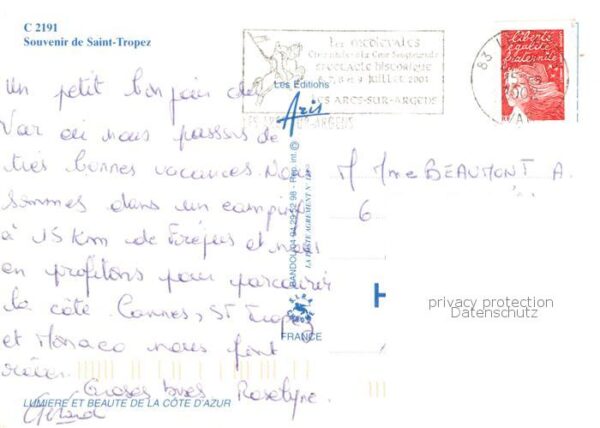 C 2191
Souvenir de Saint-Tropez
Les Médiévales
spectacle historique
7, 8 et 9 juillet 2001
LES ARCS-SUR-ARGENS
liberté
égalité
fraternité
83
Un petit bonjour du
Var où nous passons de
très bonnes vacances. Nous
sommes dans un camping
à 15 Km de Fréjus et nous
en profitons pour parcourir
la côte. Cannes, ST Tropez
et Monaco nous font
rêver.
Grosses bises Roselyne.
Gérard
Les Éditions
Aris
BANDOL 04 94 29 12 98 - Rep. int. ©
FRANCE
M. Mme BEAUMONT A.
6
H
privacy protection
Datenschutz
LUMIERE ET BEAUTE DE LA CÔTE D'AZUR